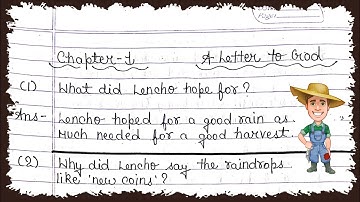 Chapter-1 A Letter to God
(1) What did Lencho hope for?
Ans- Lencho hoped for a good rain as
much needed for a good harvest.
(2) Why did Lencho say the raindrops
like 'new coins'?